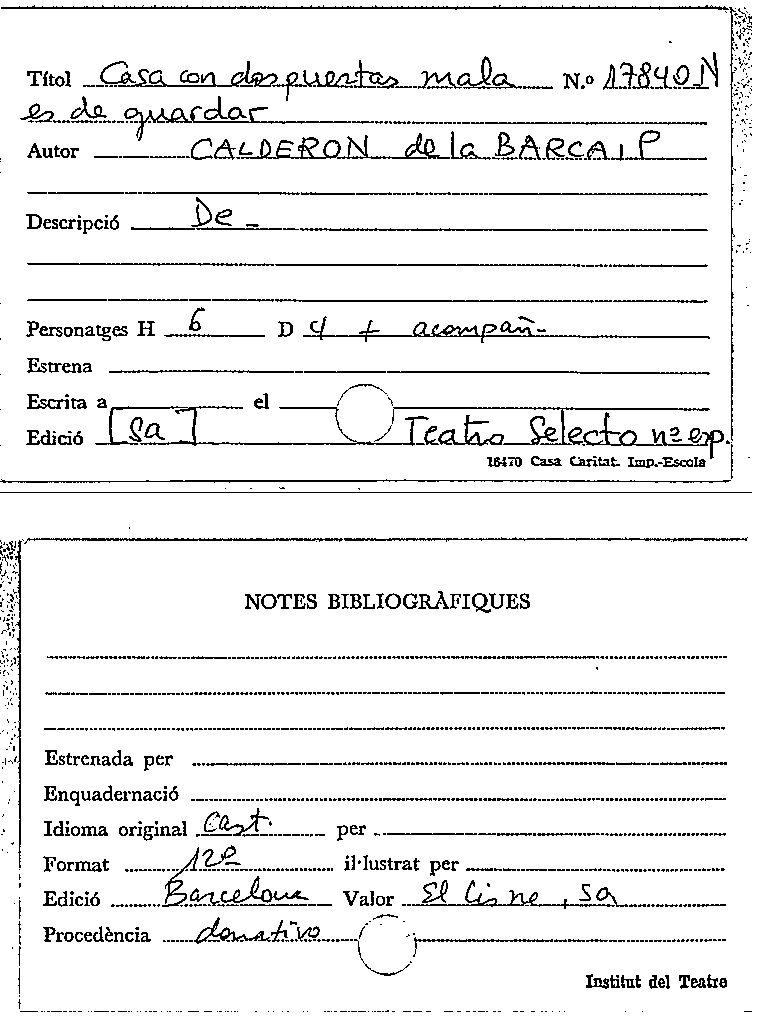 Títol Casa con dos puertas mala N.º 17840 N
es de guardar
Autor CALDERON de la BARCA, P
Descripció De -
Personatges H 6 D 4 + acompañ-
Estrena
Escrita a el
Edició [sa] Teatro Selecto nº esp.
16470 Casa Caritat. Imp.-Escola
NOTES BIBLIOGRÀFIQUES
Estrenada per
Enquadernació
Idioma original Cast. per
Format 12º il·lustrat per
Edició Barcelona Valor El Cisne, sa
Procedència donativo
Institut del Teatre